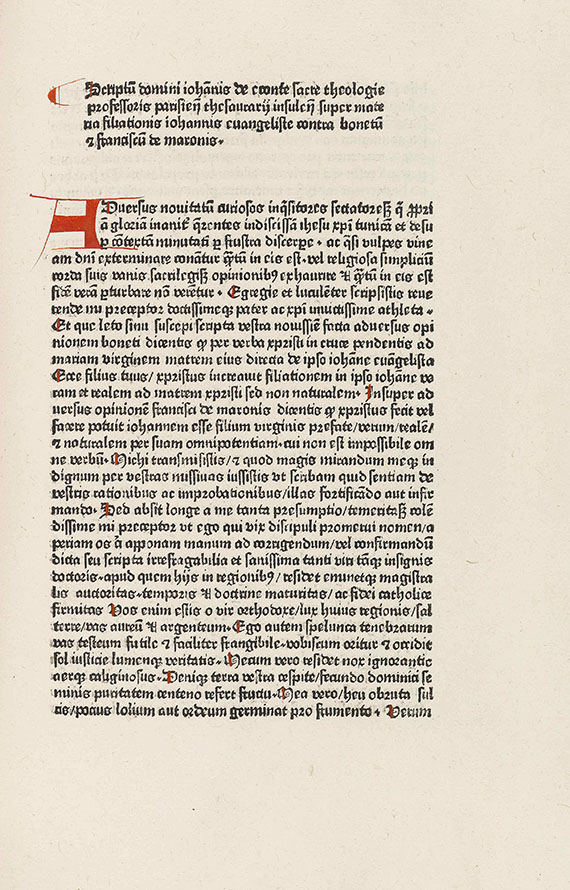 Scriptū domini iohānis de econte sacre theologie
professoris parisieñ thesaurarij insuleñ super mate
ria filiationis iohannis euangeliste contra bonetū
⁊ franciscū de maronis.
ADuersus nouitatū curiosos inq̄sitores sectatoresq̄ꝫ q̄ ꝓpri
ā gloriā inanit᷒ q̄rentes indiscissā ihesu xp̄i tunicā et desu
ꝑ cōtextū minutati ꝑ frustra discerpe. ac q̄si vulpes vine
am dn̄i exterminare conātur q̄ꝫtū in eis est. vel religiosa simpliciū
corda suis vanis sacrilegisqꝫ opinionibꝰ exhaurire ⁊ q̄ꝫtū in eis est
fidē verā ꝑturbare nō verētur. Egregie et luculēter scripsistis reue
rende mi preceptor doctissimeqꝫ pater ac xp̄i inuictissime athleta.
Et que leto sinu suscepi scripta vestra nouissīe facta aduersus opi
nionem boneti dicentis ꝙ per verba xp̄isti in cruce pendentis ad
mariam virginem matrem eius directa de ipso iohāne euāgelista
Ecce filius tuus/ xp̄istus increauit filiationem in ipso iohāne ve
ram et realem ad matrem xp̄isti sed non naturalem. Insuper ad
uersus opinionē francisci de maronis dicentis ꝙ xp̄istus fecit vel
facere potuit iohannem esse filium virginis prefate/verum/realē/
⁊ naturalem per suam omnipotentiam. cui non est impossibile om
ne verbū. Michi transmisistis/⁊ quod magis mirandum meqꝫ in
dignum per vestras missiuas iussistis vt scribam quid sentiam de
vestris rationibus ac improbationibus/illas fortificādo aut infir
mando. Sed absit longe a me tanta presumptio/temeritasqꝫ colē
dissime mi preceptor vt ego qui vix discipuli promerui nomen/a
periam os ⁊ apponam manum ad corrigendum/vel confirmandū
dicta seu scripta irrefragabilia et sanissima tanti viri tāqꝫ insignis
doctoris. apud quem hijs in regionibꝰ/ residet emunetqꝫ magistra
lis auctoritas. temporis ⁊ doctrine maturitas/ ac fidei catholice
firmitas Vos enim estis o vir orthodoxe/lux huius regionis/sal
terre/vas aureū ⁊ argenteum. Ego autem spelunca tenebrarum
vas testeum futile ⁊ faciliter frangibile. vobiscum oritur ⁊ occidit
sol iusticie lumenqꝫ veritatis. Mecum vero residet nox ignorantie
aerqꝫ caliginosus. Deniqꝫ terra vestra cespite/fecundo dominici se
minis puritatem centeno refert fructu. Mea vero/heu obruta sul
cis/pocius lolium aut ordeum germinat pro frumento. Verum